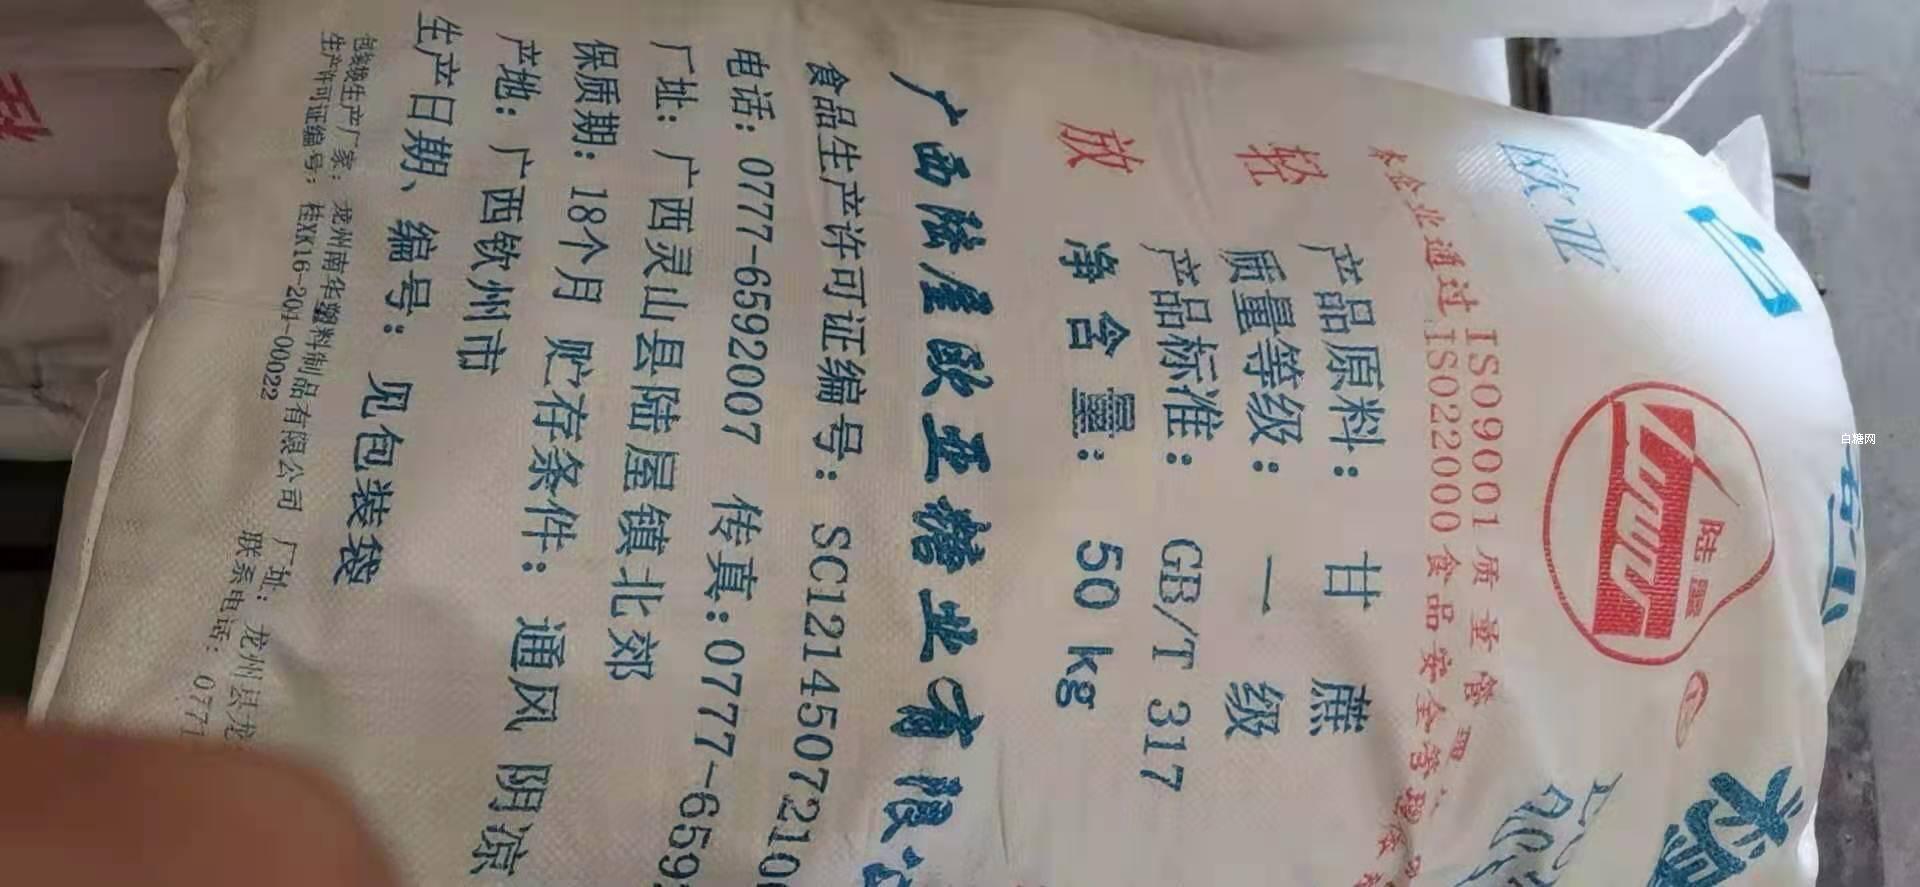 白
欧亚
陆霞
Luwus
R
本企业通过ISO9001质量管理
ISO22000食品安全管理
轻
放
产品原料：甘 蔗
质量等级：一 级
产品标准：GB/T 317
净含量：50 kg
广西陆屋欧亚糖业有限
食品生产许可证编号：SC1214507210
电话：0777-6592007 传真：0777-659
厂址：广西灵山县陆屋镇北郊
保质期：18个月 贮存条件：通风 阴凉
产地：广西钦州市
生产日期、编号：见包装袋
包装袋生产厂家：龙州南华塑料制品有限公司 厂址：龙州县龙
生产许可证编号：桂XK16-204-00022 联系电话：0771
白糖网